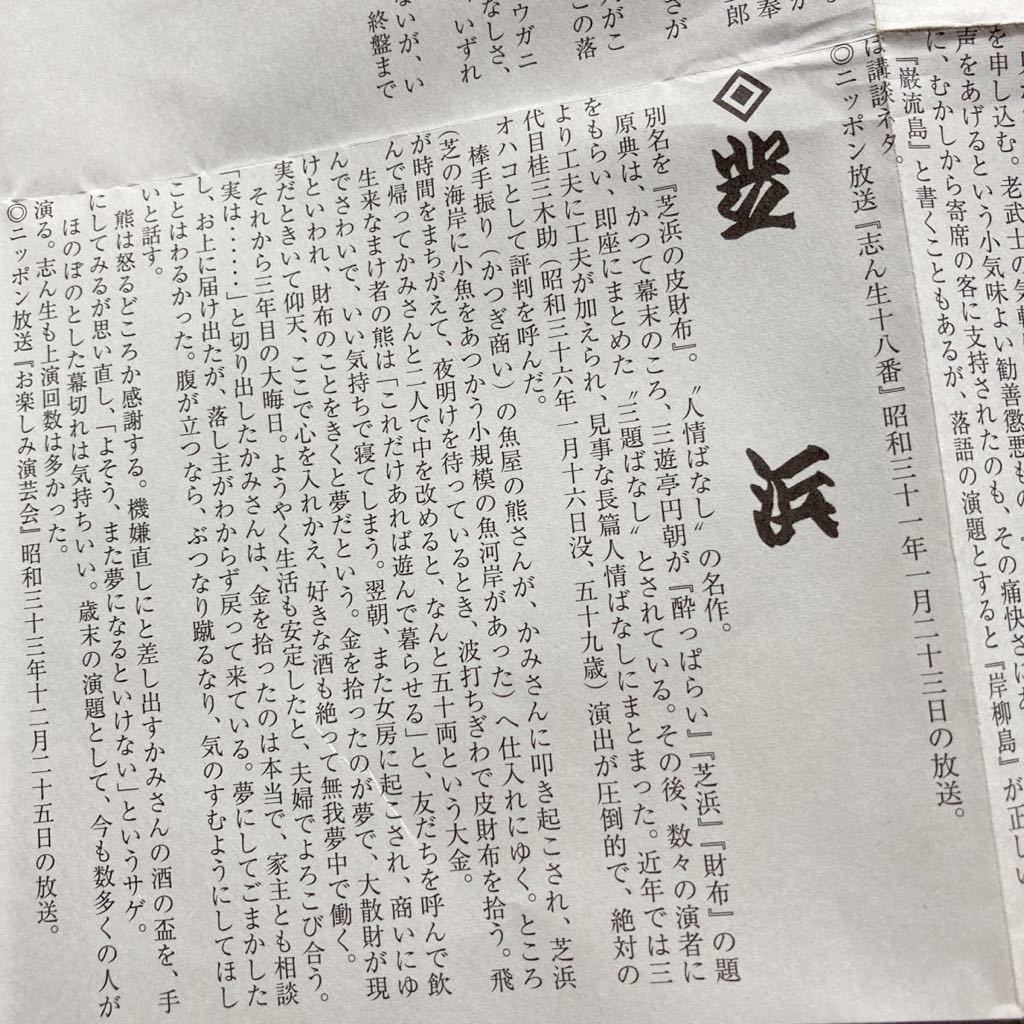 を申し込む。老武士の気転
声をあげるという小気味よい勧善懲悪もの
に、むかしから寄席の客に支持されたのも、その痛快さにあ
『巌流島』と書くこともあるが、落語の演題とすると『岸柳島』が正しい
ば講談ネタ。
◎ニッポン放送『志ん生十八番』昭和三十一年一月二十三日の放送。
奉
郎
さが
この落
ウガニ
なしさ、
いずれ
ないが、い
終盤まで
芝浜
別名を『芝浜の皮財布』。〝人情ばなし〟の名作。
原典は、かつて幕末のころ、三遊亭円朝が『酔っぱらい』『芝浜』『財布』の題
をもらい、即座にまとめた〝三題ばなし〟とされている。その後、数々の演者に
より工夫に工夫が加えられ、見事な長篇人情ばなしにまとまった。近年では三
代目桂三木助（昭和三十六年一月十六日没、五十九歳）演出が圧倒的で、絶対の
オハコとして評判を呼んだ。
棒手振り（かつぎ商い）の魚屋の熊さんが、かみさんに叩き起こされ、芝浜
（芝の海岸に小魚をあつかう小規模の魚河岸があった）へ仕入れにゆく。ところ
が時間をまちがえて、夜明けを待っているとき、波打ちぎわで皮財布を拾う。飛
んで帰ってかみさんと二人で中を改めると、なんと五十両という大金。
生来なまけ者の熊は「これだけあれば遊んで暮らせる」と、友だちを呼んで飲
んでさわいで、いい気持ちで寝てしまう。翌朝、また女房に起こされ、商いにゆ
けといわれ、財布のことをきくと夢だという。金を拾ったのが夢で、大散財が現
実だときいて仰天、ここで心を入れかえ、好きな酒も絶って無我夢中で働く。
それから三年目の大晦日。ようやく生活も安定したと、夫婦でよろこび合う。
「実は‥‥‥」と切り出したかみさんは、金を拾ったのは本当で、家主とも相談
し、お上に届け出たが、落し主がわからず戻って来ている。夢にしてごまかした
ことはわるかった。腹が立つなら、ぶつなり蹴るなり、気のすむようにしてほし
いと話す。
熊は怒るどころか感謝する。機嫌直しにと差し出すかみさんの酒の盃を、手
にしてみるが思い直し、「よそう、また夢になるといけない」というサゲ。
ほのぼのとした幕切れは気持ちいい。歳末の演題として、今も数多くの人が
演る。志ん生も上演回数は多かった。
◎ニッポン放送『お楽しみ演芸会』昭和三十三年十二月二十五日の放送。